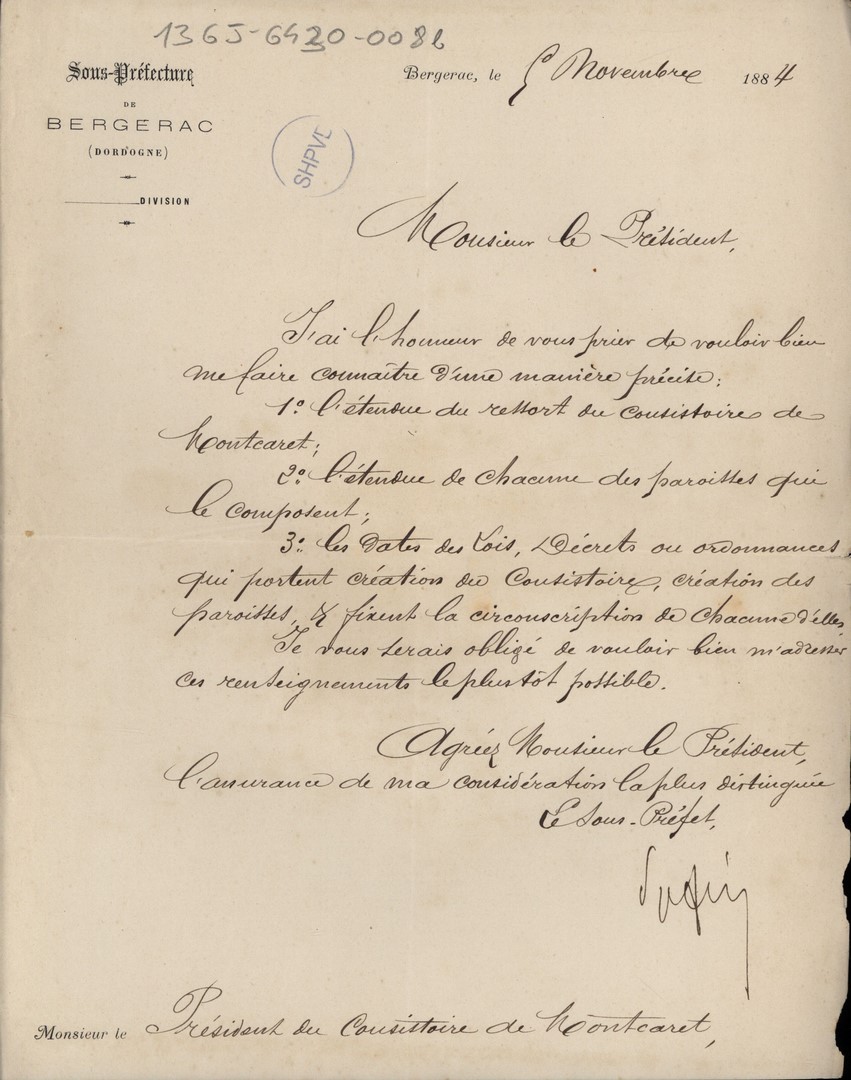 1365-6420-0086
Sous-Préfecture
DE
BERGERAC
(DORDOGNE)
DIVISION
Bergerac, le 5 Novembre 1884
SHPVD
Monsieur le Président,
J'ai l'honneur de vous prier de vouloir bien
me faire connaître d'une manière précise:
1o. l'étendue du ressort du consistoire de
Montcaret;
2o. l'étendue de chacune des paroisses qui
le composent;
3o. les dates des Lois, Décrets ou ordonnances
qui portent création du Consistoire, création des
paroisses, & fixent la circonscription de chacune d'elles.
Je vous serais obligé de vouloir bien m'adresser
ces renseignements le plus tôt possible.
Agréez Monsieur le Président,
l'assurance de ma considération la plus distinguée
Le Sous-Préfet,
Monsieur le Président du Consistoire de Montcaret,